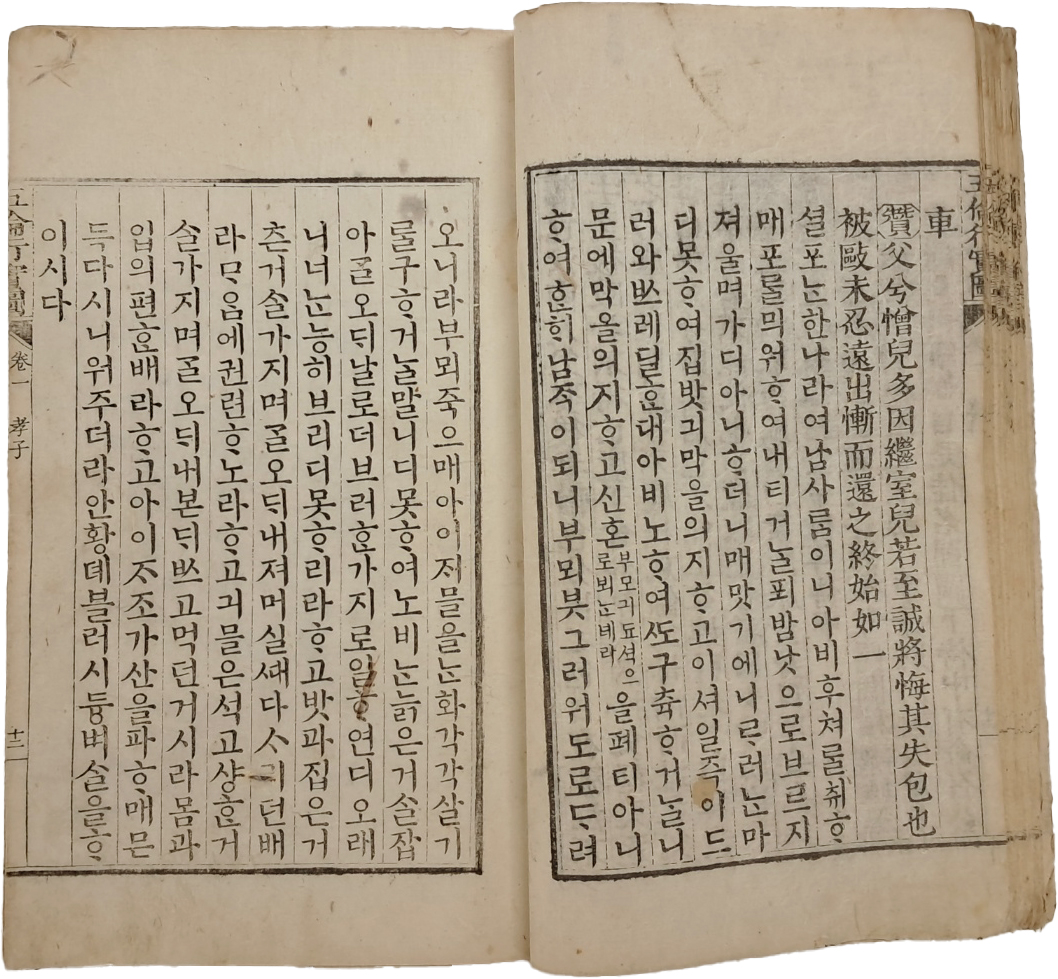 五倫行實圖
車
贊父兮憎兒多因繼室兒若至誠將悔其失包也
被毆未忍遠出慚而還之終始如一
셜포ᄂᆞᆫ한나라여남사ᄅᆞᆷ이니아비후쳐ᄅᆞᆯ취ᄒᆞ
매포ᄅᆞᆯ믜워ᄒᆞ여내티거ᄂᆞᆯ푀밤낫으로브르지
져울며가디아니ᄒᆞ더니매맛기에니르러ᄂᆞᆫ마
디못ᄒᆞ여집밧긔막을의지ᄒᆞ고이셔일즉이드
러와ᄡᅳ레딜ᄒᆞᆫ대아비노ᄒᆞ여ᄯᅩ구츅ᄒᆞ거ᄂᆞᆯ니
문에막을의지ᄒᆞ고신혼부모긔됴셕으로뵈ᄂᆞᆫ녜라을폐티아니
ᄒᆞ여ᄒᆞᆫᄒᆡ남즉이되니부뫼븟그러워도로ᄃᆞ려
오니라부뫼죽으매아이ᄌᆡ믈을ᄂᆞᆫ화각각살기
ᄅᆞᆯ구ᄒᆞ거ᄂᆞᆯ말니디못ᄒᆞ여노비ᄂᆞᆫ늙은거ᄉᆞᆯ잡
아ᄀᆞᆯ오ᄃᆡ날로더브러ᄒᆞᆫ가지로일ᄒᆞ연디오래
니너ᄂᆞᆫ능히브리디못ᄒᆞ리라ᄒᆞ고밧과집은거
츤거ᄉᆞᆯ가지며ᄀᆞᆯ오ᄃᆡ내져머실ᄣᅢ다ᄉᆞ리던배
라ᄆᆞᄋᆞᆷ에권련ᄒᆞ노라ᄒᆞ고긔믈은석고샹ᄒᆞᆫ거
ᄉᆞᆯ가지며ᄀᆞᆯ오ᄃᆡ내본ᄃᆡᄡᅳ고먹던거시라몸과
입의편ᄒᆞᆫ배라ᄒᆞ고아이ᄌᆞ조가산을파ᄒᆞ매믄
득다시니워주더라안황뎨블러시듕벼ᄉᆞᆯ을ᄒᆞ
이시다
五倫行實圖 卷一 孝子 十二